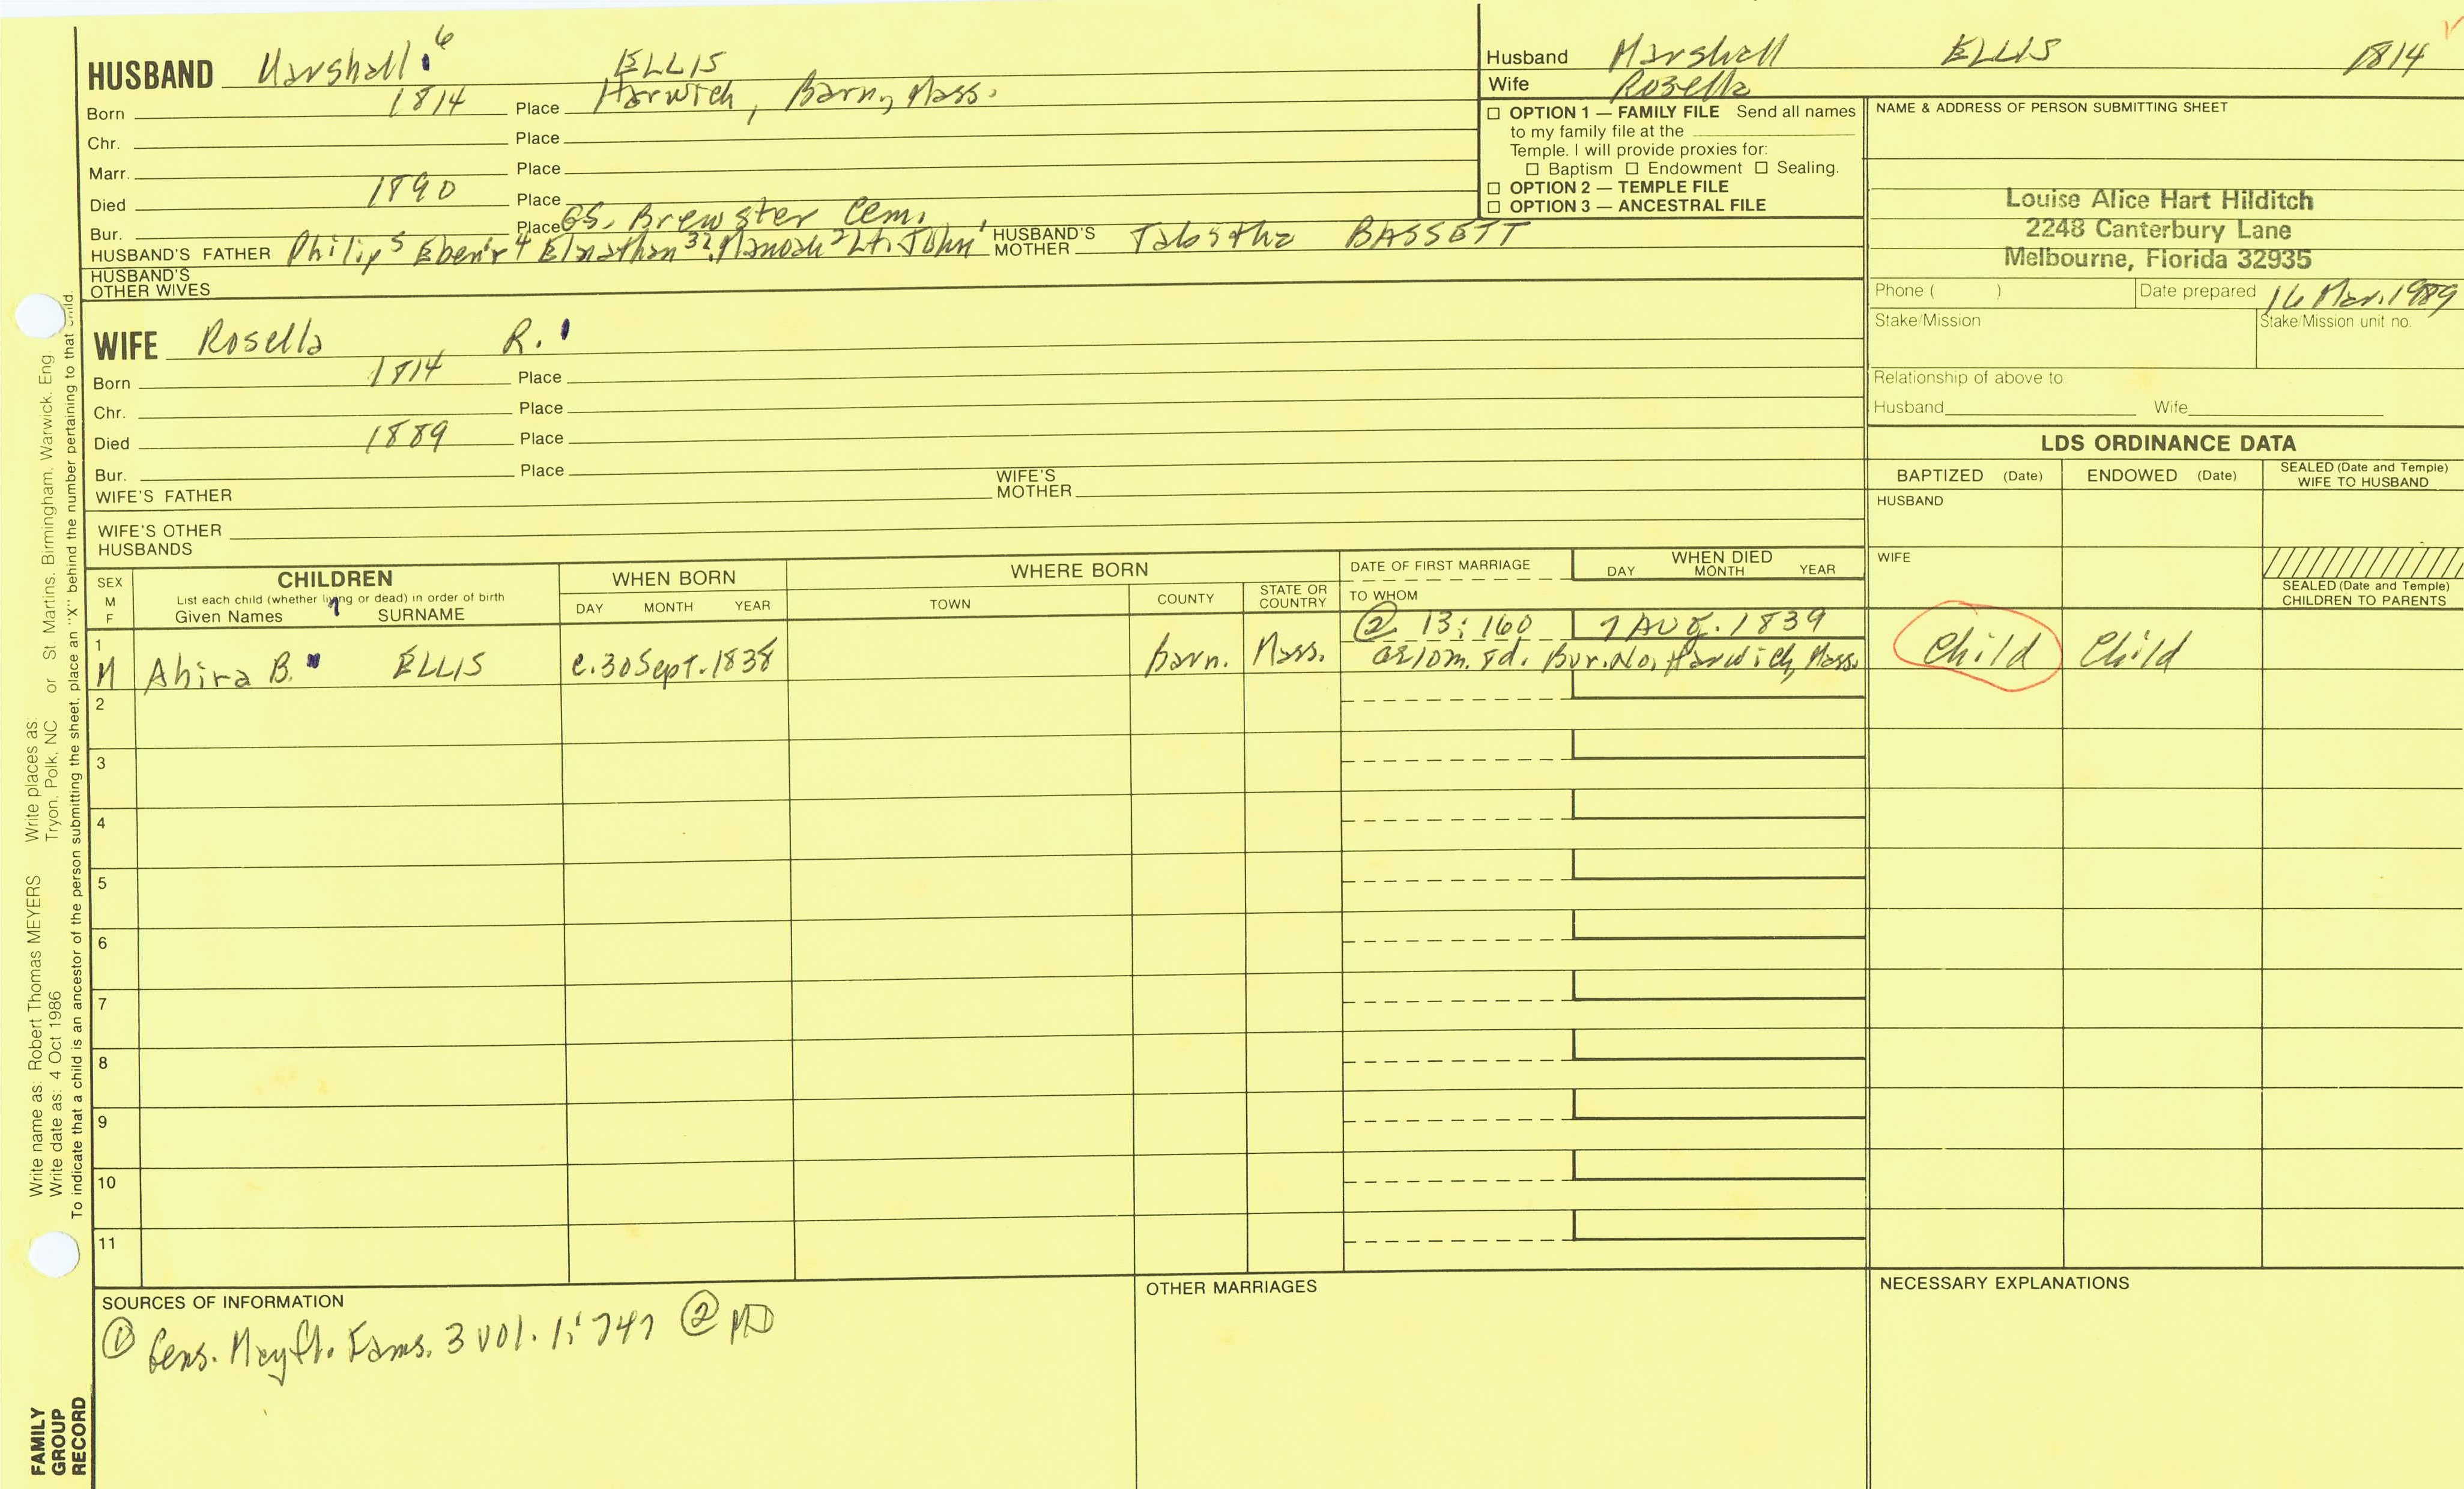 HUSBAND Marshall 6 ELLIS
Born 1814 Place Harwich, Barn, Mass.
Chr. Place
Marr. Place
Died 1890 Place
Bur. Place GS. Brewster Cem.
HUSBAND'S FATHER Philip 5 Eben'r 4 Elnathan 3 Manoah 2 Lt. John 1 HUSBAND'S MOTHER Tabitha BASSETT
HUSBAND'S OTHER WIVES
Husband Marshall ELLIS 1814
Wife Rosella
☐ OPTION 1 — FAMILY FILE Send all names
to my family file at the
Temple. I will provide proxies for:
☐ Baptism ☐ Endowment ☐ Sealing.
☐ OPTION 2 — TEMPLE FILE
☐ OPTION 3 — ANCESTRAL FILE
NAME & ADDRESS OF PERSON SUBMITTING SHEET
Louise Alice Hart Hilditch
2248 Canterbury Lane
Melbourne, Florida 32935
Phone ( ) Date prepared 16 Mar. 1989
Stake/Mission Stake/Mission unit no.
Relationship of above to
Husband Wife
WIFE Rosella R. 1
Born 1814 Place
Chr. Place
Died 1889 Place
Bur. Place
WIFE'S FATHER WIFE'S MOTHER
WIFE'S OTHER
HUSBANDS
LDS ORDINANCE DATA
BAPTIZED (Date) ENDOWED (Date) SEALED (Date and Temple) WIFE TO HUSBAND
HUSBAND
WIFE
SEALED (Date and Temple)
CHILDREN TO PARENTS
SEX
M
F
CHILDREN
List each child (whether living or dead) in order of birth
Given Names 7 SURNAME
WHEN BORN
DAY MONTH YEAR
WHERE BORN
TOWN COUNTY STATE OR COUNTRY
DATE OF FIRST MARRIAGE
TO WHOM
WHEN DIED
DAY MONTH YEAR
1 ② 13:160 7 Aug. 1839
M Ahira B. ELLIS c.30 Sept. 1838 barn. Mass. ae 10m. 8d. Bur. No. Harwich, Mass. Child Child
2
3
4
5
6
7
8
9
10
11
SOURCES OF INFORMATION
① Gens. Mayfl. Fams. 3 vol. 1:747 ② MD
OTHER MARRIAGES
NECESSARY EXPLANATIONS
Write name as: Robert Thomas MEYERS Write places as:
Write date as: 4 Oct 1986 Tryon, Polk, NC or St. Martins, Birmingham, Warwick, Eng
To indicate that a child is an ancestor of the person submitting the sheet, place an "X" behind the number pertaining to that child.
FAMILY
GROUP
RECORD